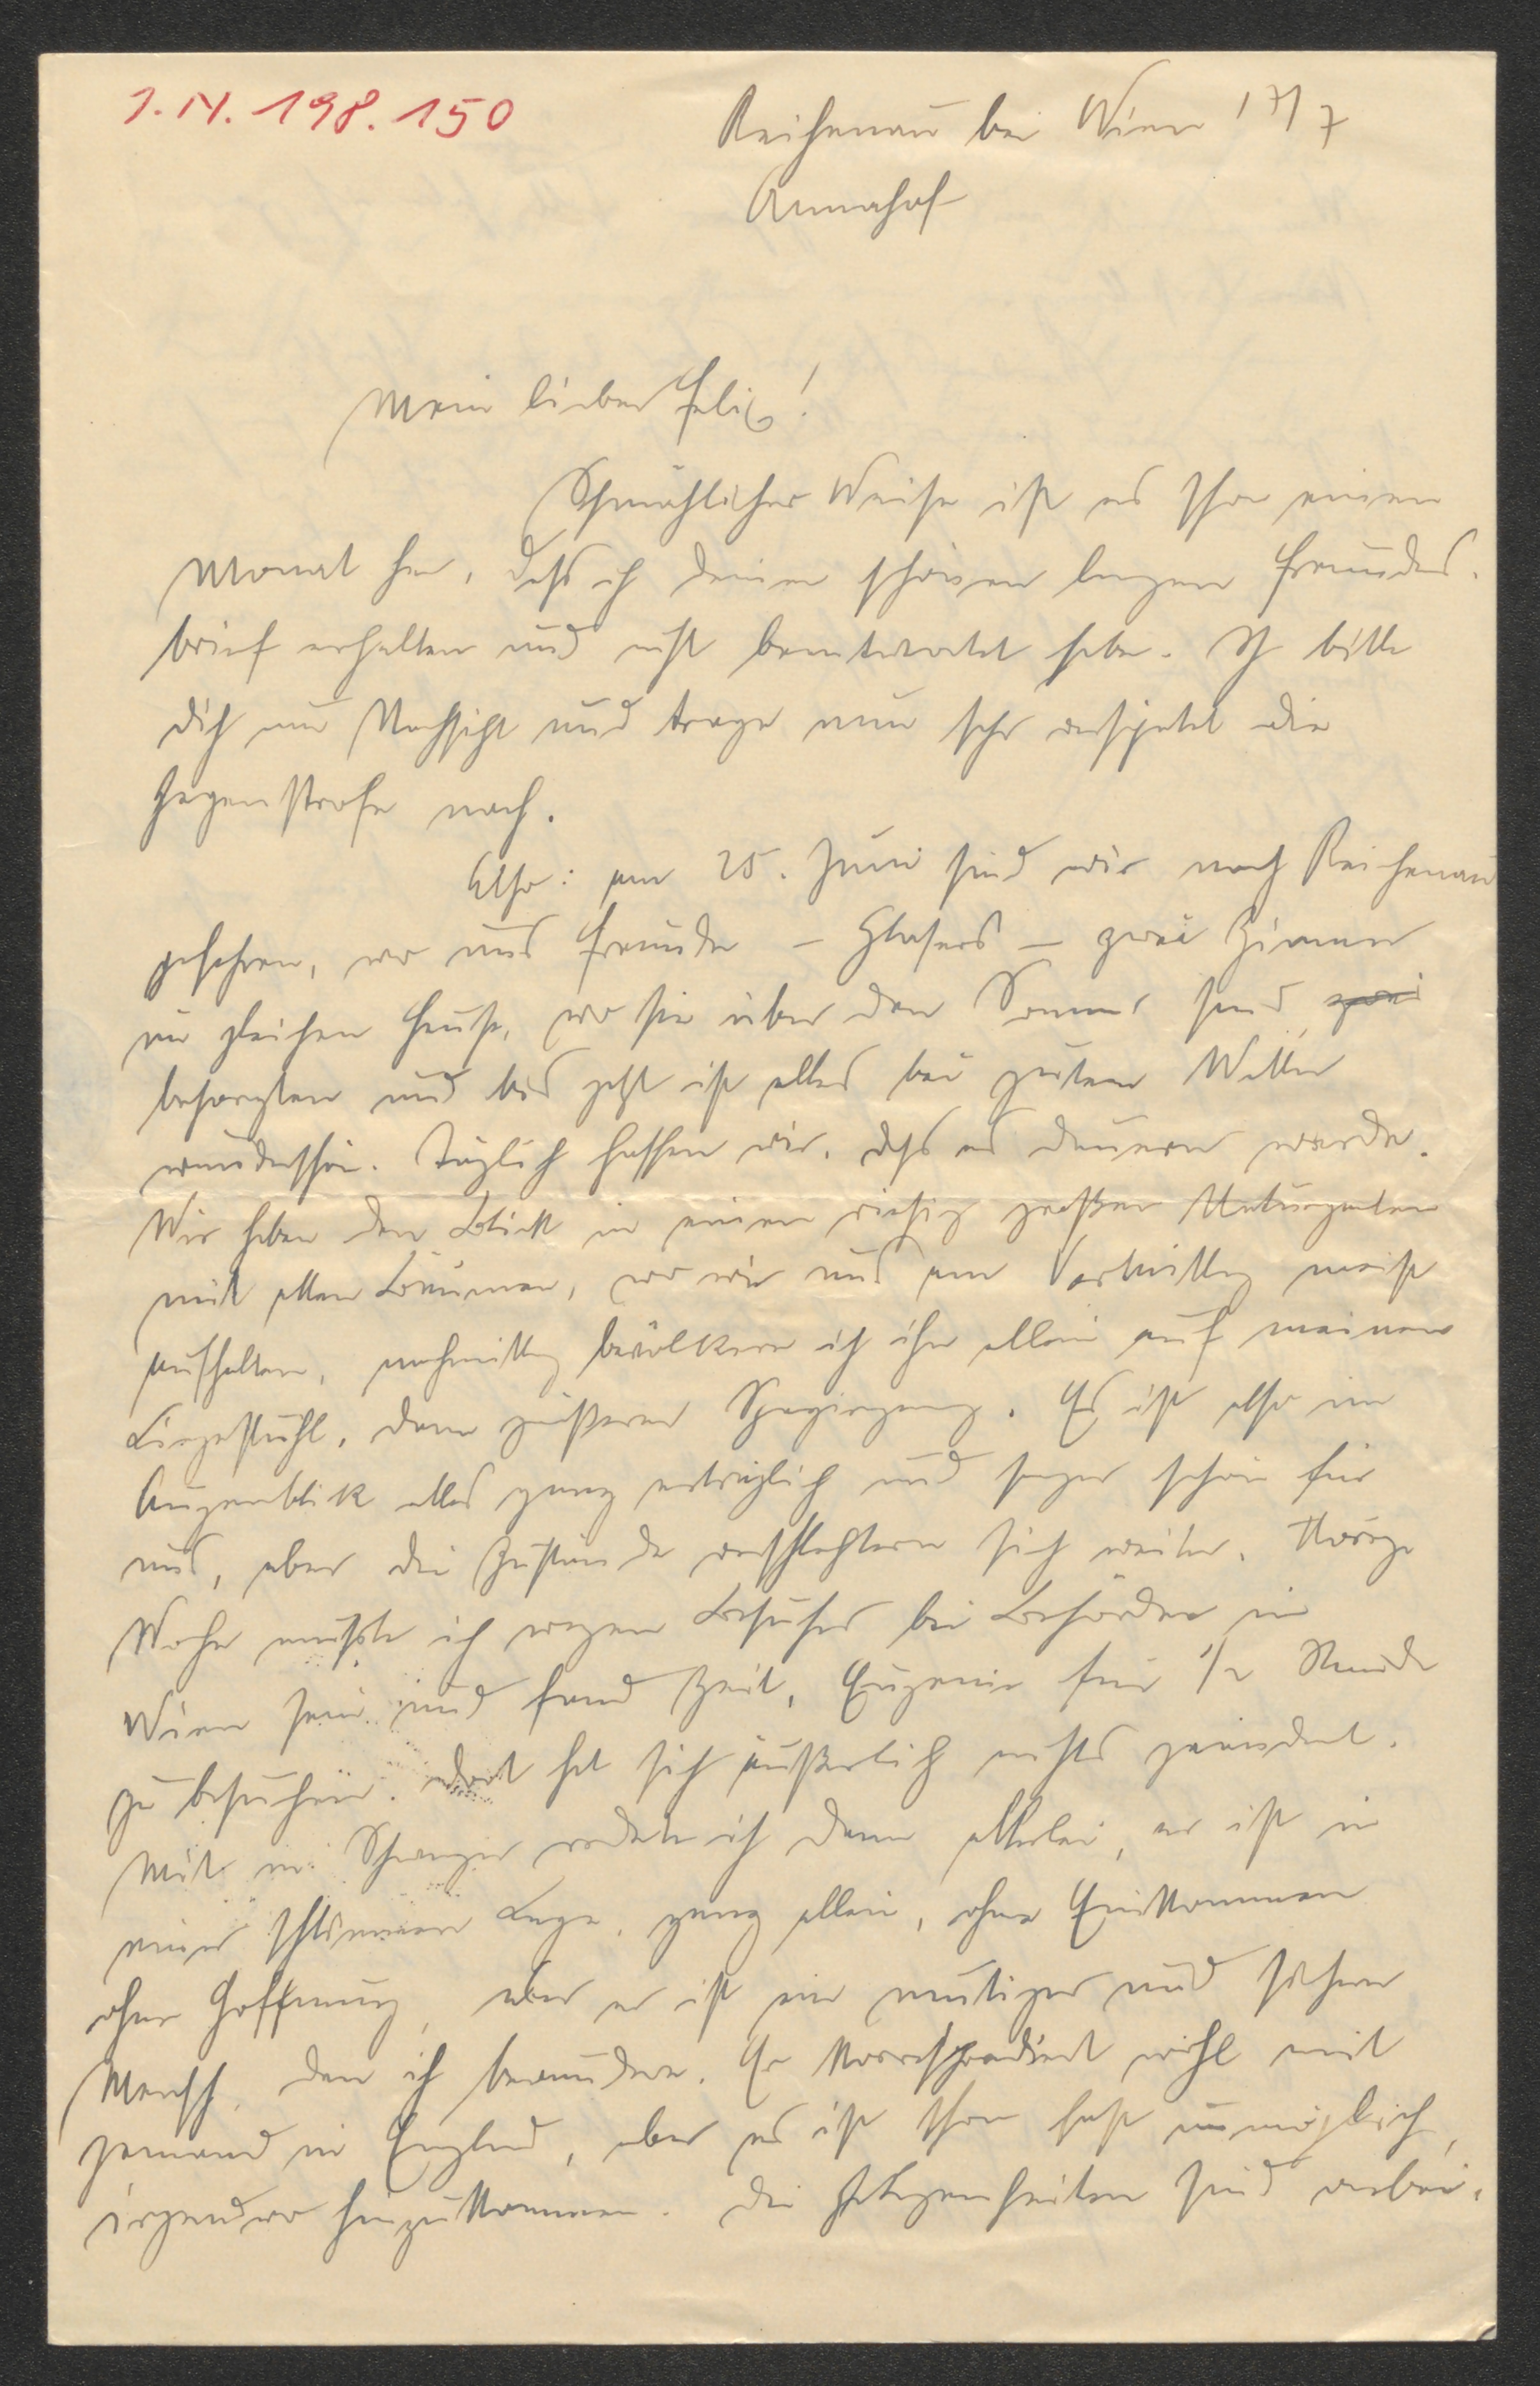 I.N. 198.150
Reichenau bei Wien 17/7
Annahof
Mein lieber Felix!
Schmählicher Weise ist es schon einen
Monat her, dass ich deinen schönen langen Freundes-
brief erhalten und nicht beantwortet habe. Ich bitte
dich um Nachsicht und trage nun sehr verspätet die
Gegenstrofe nach.
Also: am 25. Juni sind wir nach Reichenau
gefahren, wo uns Freunde – Glasers – zwei Zimmer
im gleichen Hause, wo sie über den Sommer sind, zwei
besorgten und bis jetzt ist alles bei gutem Wetter
wunderschön. Täglich hoffen wir, dass es dauern werde.
Wir haben den Blick in einen riesig großen Naturgarten
mit alten Bäumen, wo wir uns am Vormittag meist
aufhalten, nachmittag bevölkere ich ihn allein auf meinem
Liegestuhl, dann größerer Spaziergang. Es ist also im
Augenblick alles ganz erträglich und sogar schön für
uns, aber die Zustände verschlechtern sich weiter. Vorige
Woche mußte ich wegen Besuches bei Behörden in
Wien sein und fand Zeit, Eugenie für 1/2 Stunde
zu besuchen. Dort hat sich äußerlich nichts geändert.
Mit m. Schwager redete ich dann allerlei, er ist in
einer schlimmen Lage, ganz allein, ohne Einkommen
ohne Hoffnung, aber er ist ein mutiger und sicherer
Mensch, den ich bewundere. Er korrespondiert wohl mit
jemand in England, aber es ist schon fast unmöglich,
irgendwo hinzukommen. Die Gelegenheiten sind vorbei,